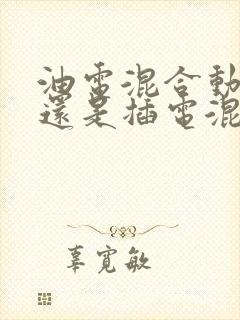 油電混合動
還是插電混
辜寬敏